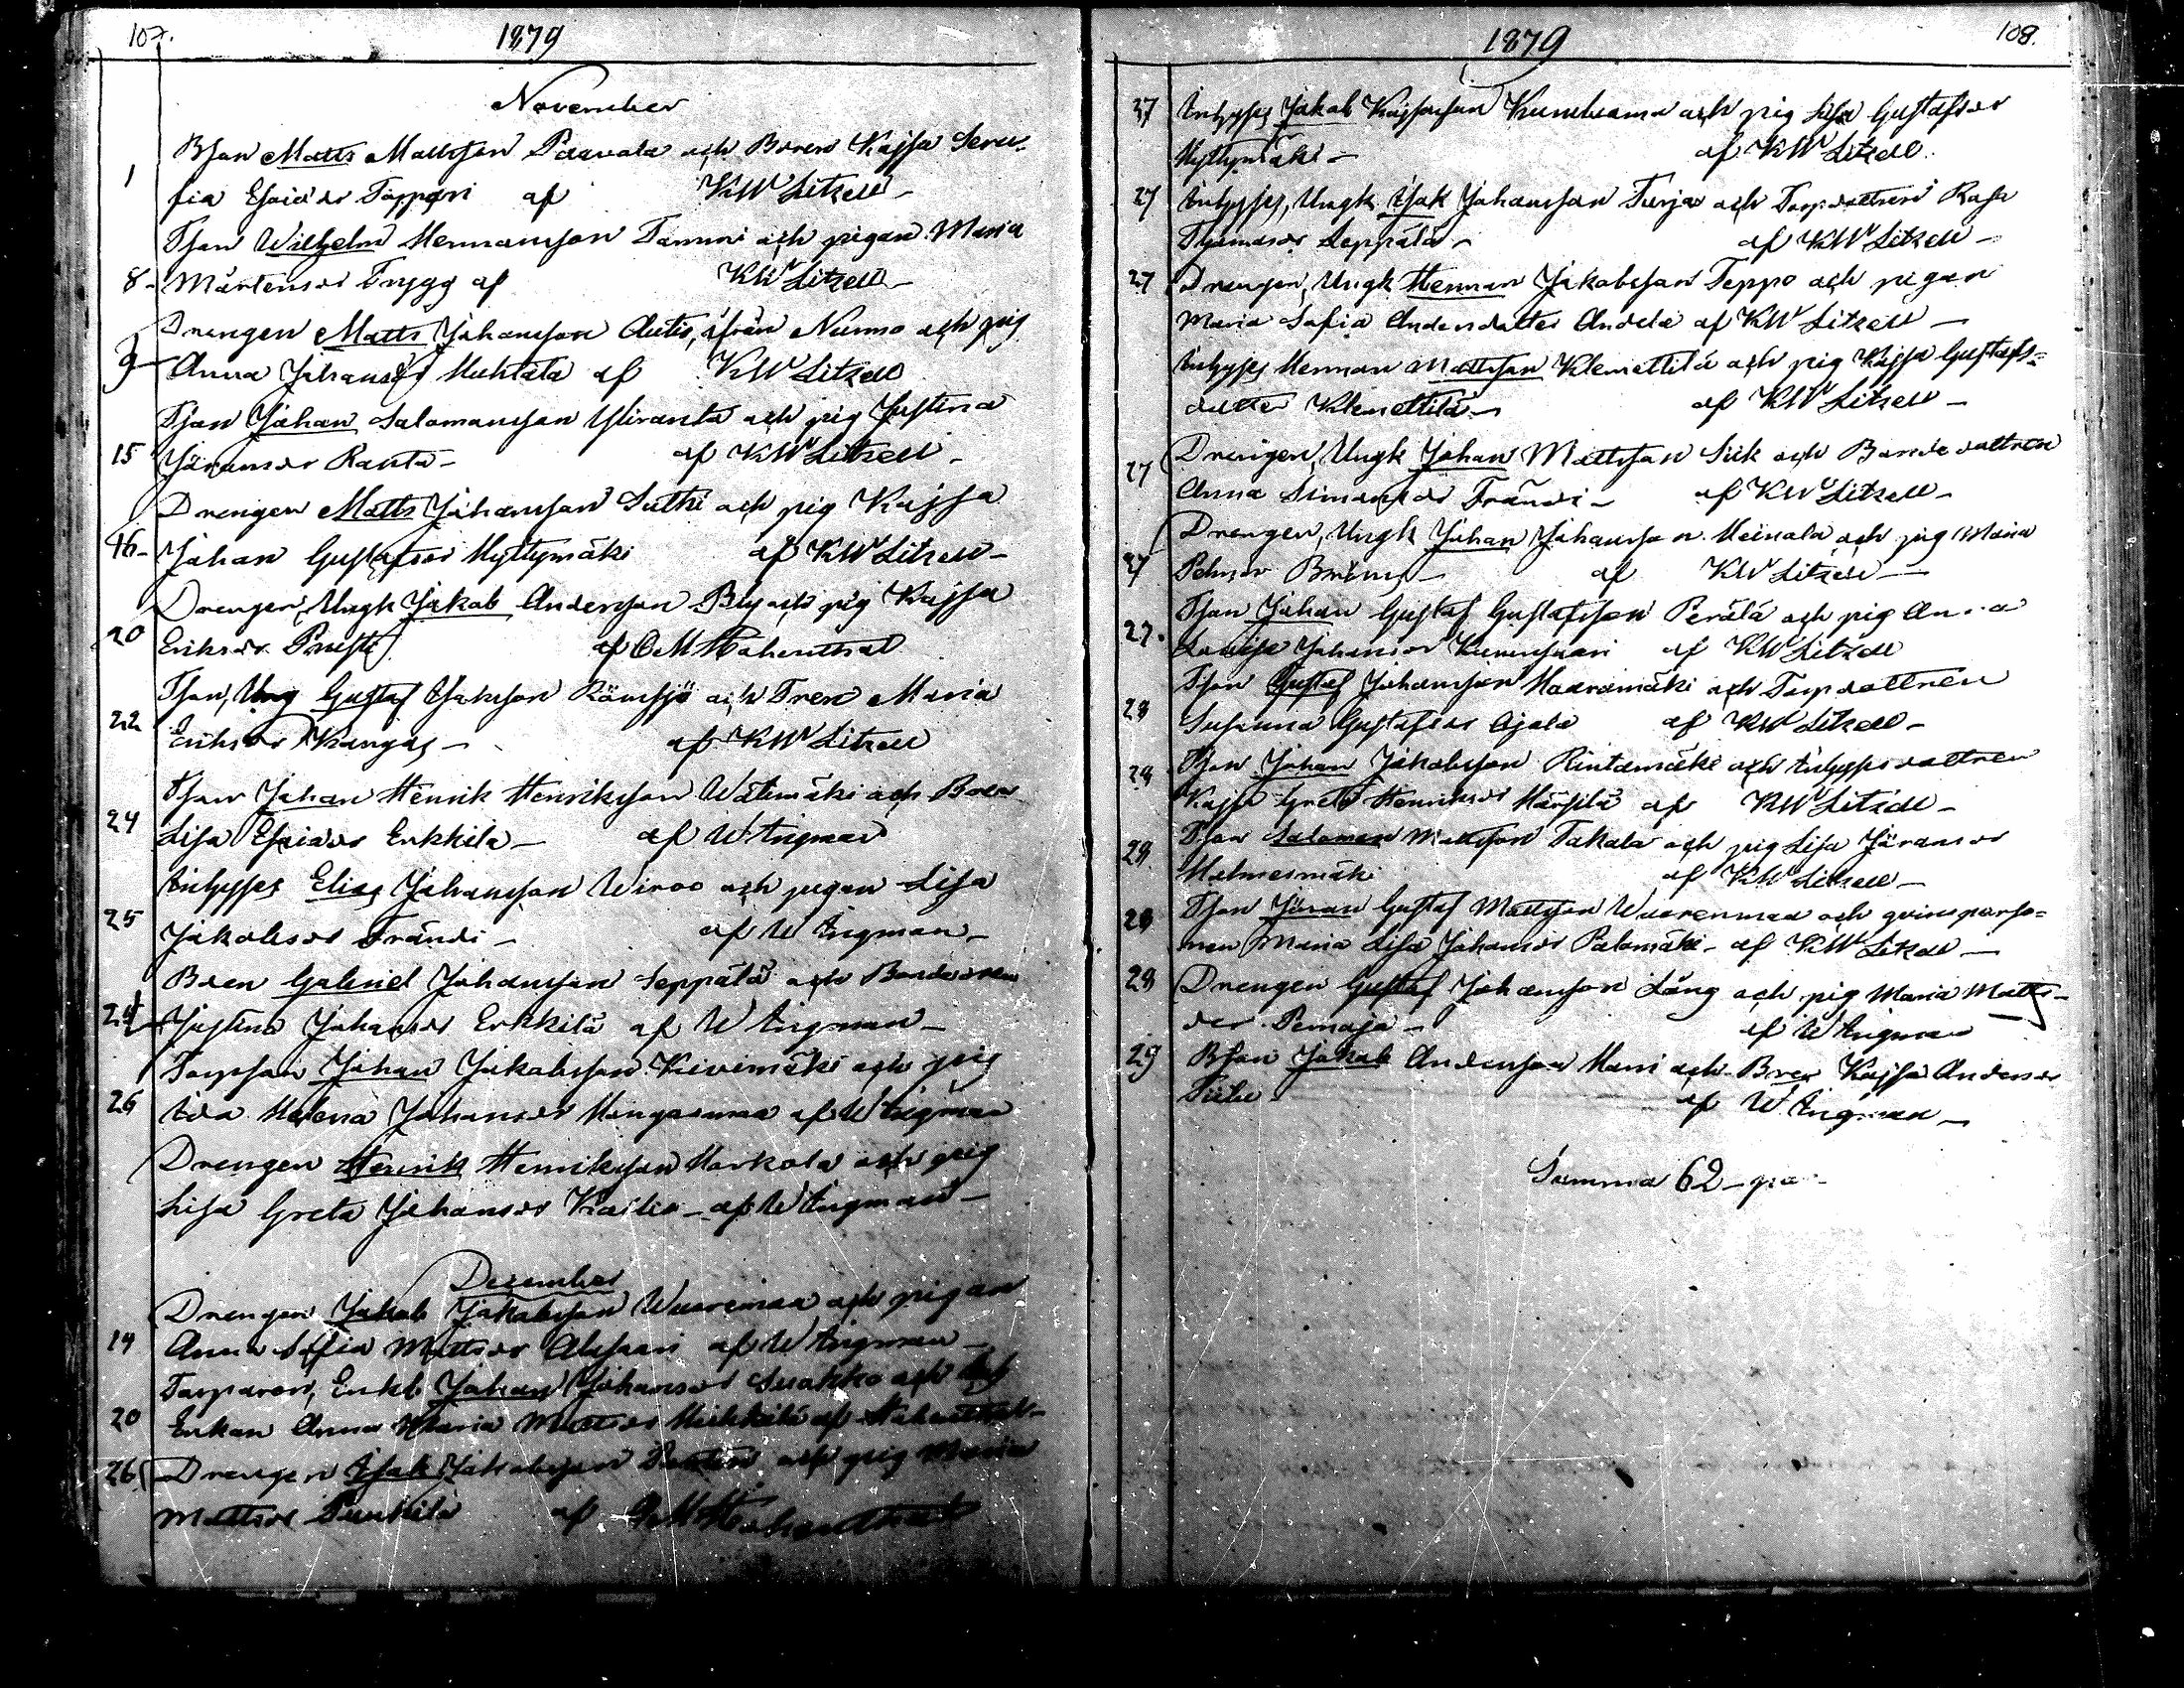 107.
1879
November
1 Bson Matts Mattsson Paavola och Bdren Kajsa Sera-
fia Esaiasdr Töppäri af KW Litzell
Tson Wilhelm Hermansson Tammi och pigan Maria
8 Mårtensdr Trygg af KW Litzell
Drengen Matts Johansson Autio, ifrån Nurmo och pig
9 Anna Johansdr Huhtala af KW Litzell
Tson Johan Salomonsson Yliranta och pig Justina
15 Jöransdr Ranta af KW Litzell
Drengen Matts Johansson Luthi och pig Kajsa
16 Johan Gustafsdr Myllymäki af KW Litzell
Drengen, Ungk Jakob Andersson Bly och pig Kajsa
20 Eriksdr af O M Hohenthal
Tson, Ung Gustaf Isaksson Rämsjö och Tdren Maria
22 Eriksdr Kangas af KW Litzell
Tson Johan Henrik Henriksson Wälimäki och Bdren
24 Lisa Esaiasdr Erkkilä af W Ingman
Inhyses Elias Johansson Wiroo och pigan Lisa
25 Jakobsdr Frändi af W Ingman
Bden Gabriel Johansson Seppälä och Bondedren
24 Justina Johansdr Erkkilä af W Ingman
Torpson Johan Jakobsson Kivimäki och pig
26 Ida Helena Johansdr Hangasmaa af W Ingman
Drengen Henrik Henriksson Harkola och pig
Lisa Greta Johansdr Kallio af W Ingman
December
Drengen Jakob Jakobsson Wuorimaa och pigan
14 Anna Sofia Mattsdr af W Ingman
Torparen, Enkl Johan Johansson Luokko och
20 Enkan Anna Maria Mattsdr Heikkilä af Hohenthal
26 Drengen Isak Jakobsson och pig Maria
Mattsdr Punkila af O M Hohenthal
1879
108.
27 Inhyses Jakob Kajsasson och pig Lisa Gustafsdr
Myllymäki af KW Litzell
27 Inhyses, Ungk Isak Johansson Turja och Torpdottren Rosa
Thomasdr Leppälä af KW Litzell
27 Drengen, Ungk Herman Jakobsson Teppo och pigan
Maria Sofia Andersdotter Andela af KW Litzell
Inhyses Herman Mattsson Klemettilä och pig Kajsa Gustafs-
dotter Klemettilä af KW Litzell
27 Drengen, Ungk Johan Mattsson Siik och Bondedottren
Anna Simonsdr Frändi af KW Litzell
Drengen, Ungk Johan Johansson Heinola och pig Maria
27 af KW Litzell
Tson Johan Gustaf Gustafsson Perälä och pig Anna
27. Lovisa Johansdr af KW Litzell
Tson Gustaf Johansson Haaramäki och Torpdottren
28 Susanna Gustafsdr Ojala af KW Litzell
28 Tson Johan Jakobsson Rintamäki och Inhysesdottren
Kajsa Greta Henriksdr Härsilä af KW Litzell
Tson Salomon Mattsson Takala och pig Lisa Jöransdr
28 Holmesmäki af KW Litzell
28 Tson Jöran Gustaf Mattsson Wuorenmaa och qvinsperso-
nen Maria Lisa Johansdr Palomäki af KW Litzell
28 Drengen Gustaf Johansson Lång och pig Maria Matts-
der Pernaja af W Ingman
29 Bson Jakob Andersson Harri och Bdren Kajsa Andersdr
af W Ingman
Summa 62 par